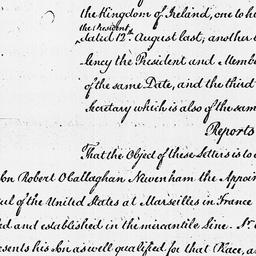 the Kingdom of Ireland, one to h
the President
dated 12th. August last; another
lency the President and Memb
of the same Date, and the third
Secretary which is also of the sam
Reports
That the Object of these Letters is to
on Robert O Callaghan Newenham the Appoin
sul of the United States at Marseilles in France
ed and established in the mercantile Line.
esents his Son as well qualified for that Place, a